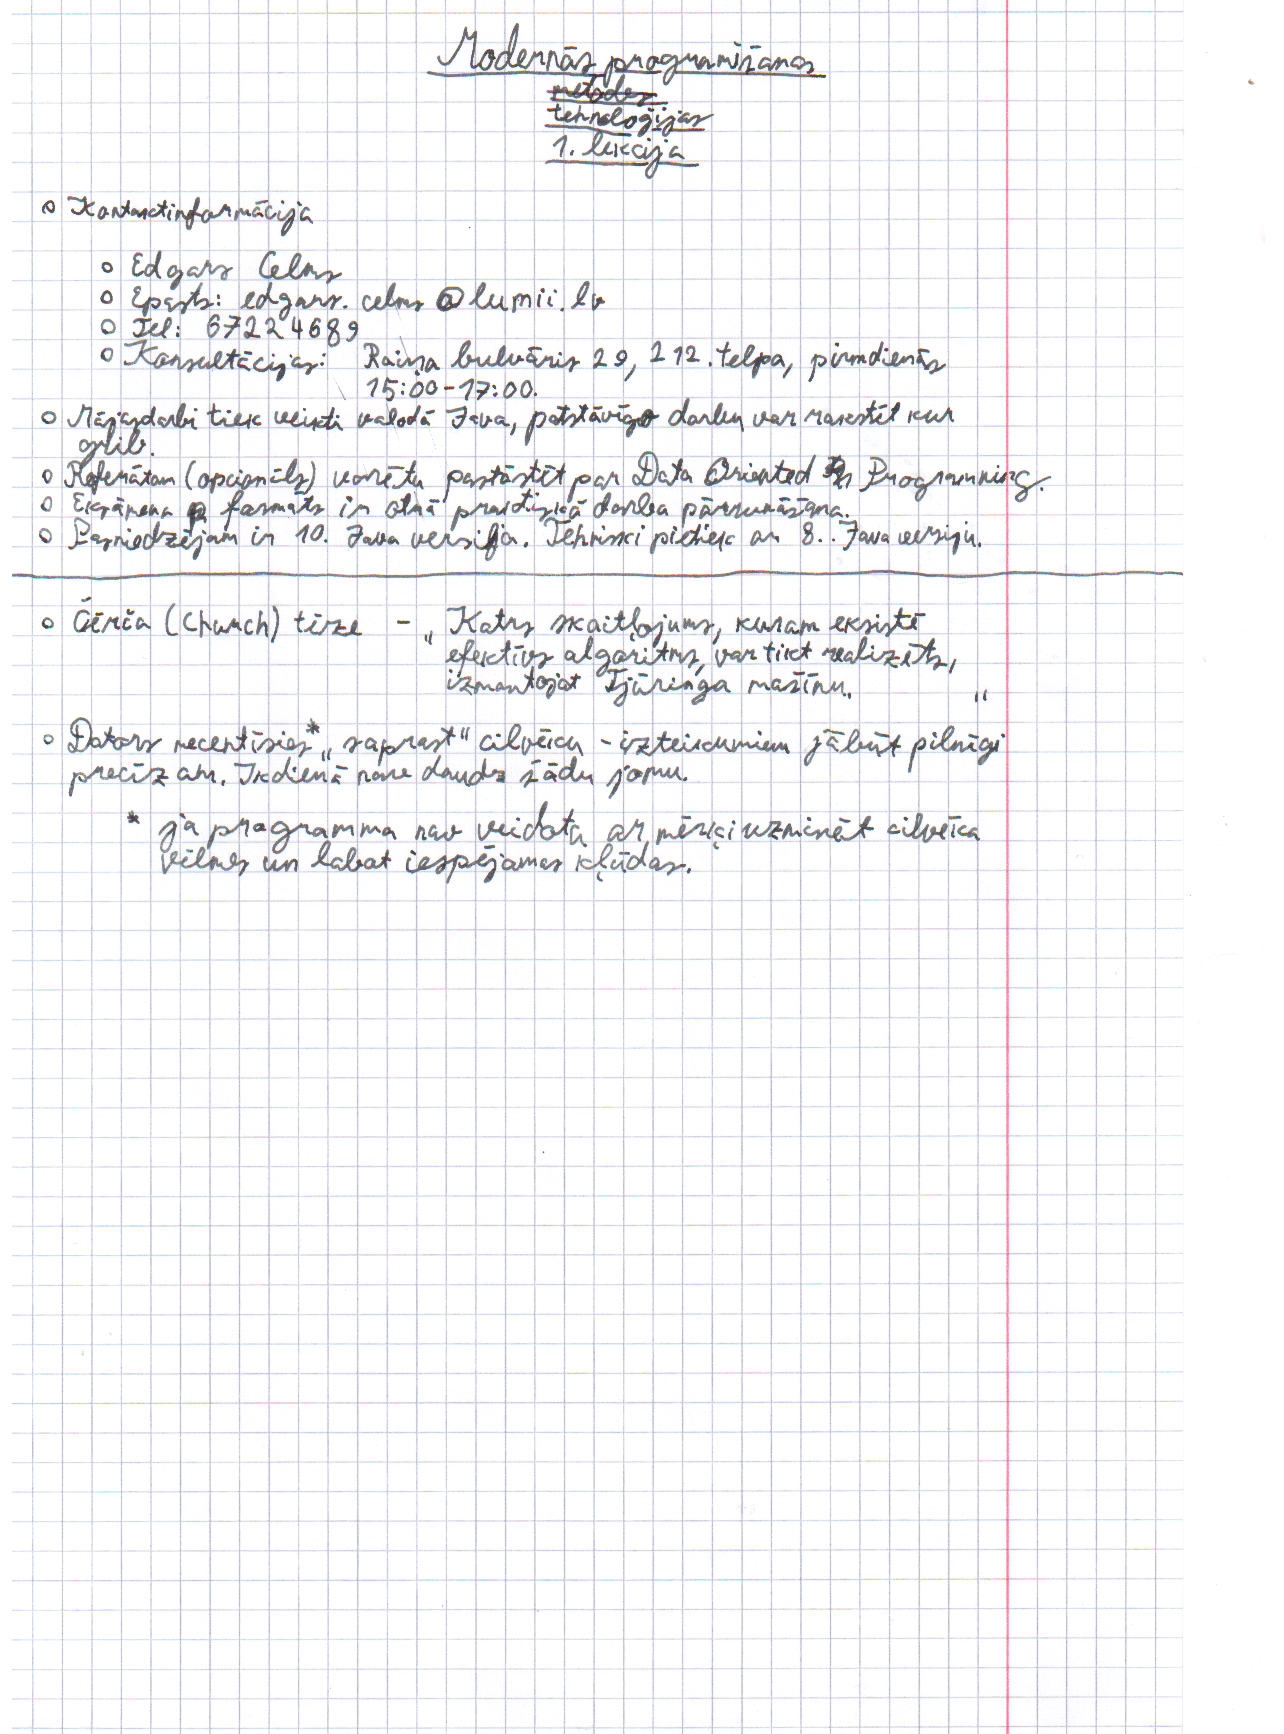 Modernās programmēšanas
metodes
tehnoloģijas
1. lekcija
o Kontaktinformācija
o Edgars Celms
o Epasts: edgars.celms@lumii.lv
o Tel: 67224689
o Konsultācijas: Raiņa bulvāris 29, 212. telpa, pirmdienās
15:00-17:00.
o Mājasdarbi tiek veikti valodā Java, patstāvīgo darbu var rakstīt kur
grib.
o Referātam (opcionāls) varētu pastāstīt par Data Oriented Programming.
o Eksāmena formāts ir otrā praktiskā darba pārrunāšana.
o Pasniedzējam ir 10. Java versija. Tehniski pietiek ar 8.. Java versiju.
o Čērča (Church) tēze - „Katrs skaitļojums, kuram eksistē
efektīvs algoritms, var tikt realizēts,
izmantojot Tjūringa mašīnu. "
o Dators necentīsies* „saprast" cilvēku - izteikumiem jābūt pilnīgi
precīzam. Ikdienā nav daudz šādu jomu.
* ja programma nav veidota ar mērķi uzminēt cilvēka
vēlmes un labot iespējamas kļūdas.